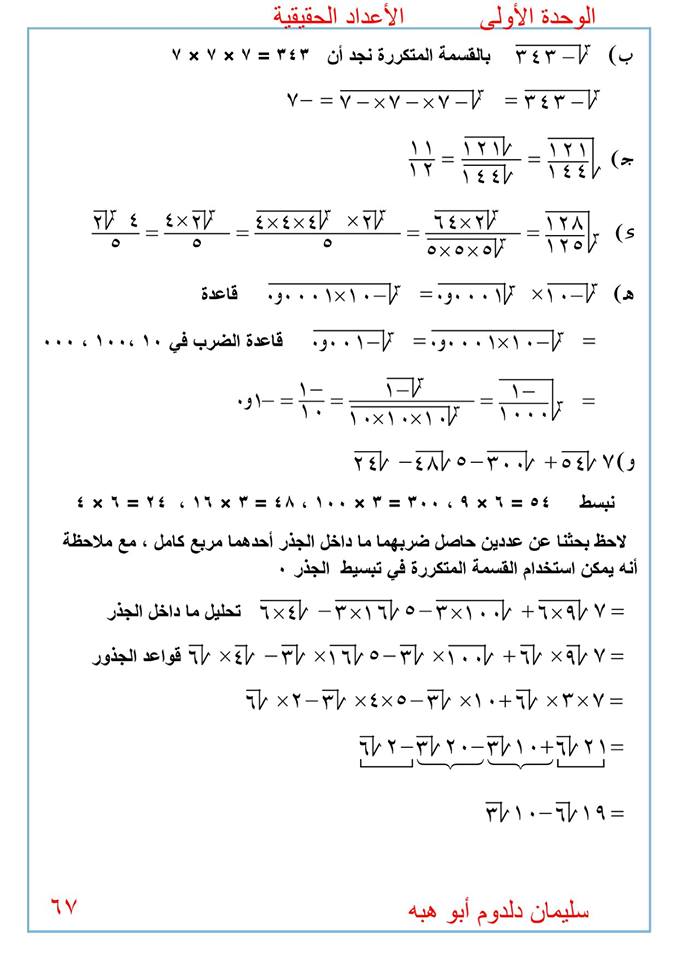 الوحدة الأولى الأعداد الحقيقية
ب) ∛(−٣٤٣) بالقسمة المتكررة نجد أن ٣٤٣ = ٧ × ٧ × ٧
∛(−٣٤٣) = ∛(−٧×−٧×−٧) = −٧
ج) √(١٢١/١٤٤) = √١٢١/√١٤٤ = ١١/١٢
ء) ∛(١٢٨/١٢٥) = ∛(٦٤×٢)/∛(٥×٥×٥) = ∛٢ × ∛(٤×٤×٤)/٥ = ∛٢×٤/٥ = ٤∛٢/٥
هـ) ∛(−١٠) × ∛(٠و٠٠٠١) = ∛(−١٠×٠و٠٠٠١) قاعدة
= ∛(−١٠×٠و٠٠٠١) = ∛(−٠و٠٠١) قاعدة الضرب في ١٠ ،١٠٠ ، ٠٠٠
= ∛(−١/١٠٠٠) = ∛(−١)/∛(١٠×١٠×١٠) = −١/١٠ = −٠و١
و) ٧√٥٤ + √٣٠٠ − ٥√٤٨ − √٢٤
نبسط ٥٤ = ٦ × ٩ ، ٣٠٠ = ٣ × ١٠٠ ، ٤٨ = ٣ × ١٦ ، ٢٤ = ٦ × ٤
لاحظ بحثنا عن عددين حاصل ضربهما ما داخل الجذر أحدهما مربع كامل ، مع ملاحظة
أنه يمكن استخدام القسمة المتكررة في تبسيط الجذر ٠
= ٧√(٩×٦) + √(١٠٠×٣) − ٥√(١٦×٣) − √(٤×٦) تحليل ما داخل الجذر
= ٧√٩ × √٦ + √١٠٠ × √٣ − ٥√١٦ × √٣ − √٤ × √٦ قواعد الجذور
= ٧×٣× √٦ + ١٠× √٣ − ٥×٤× √٣ − ٢× √٦
= ٢١√٦ + ١٠√٣ − ٢٠√٣ − ٢√٦
= ١٩√٦ − ١٠√٣
سليمان دلدوم أبو هبه ٦٧